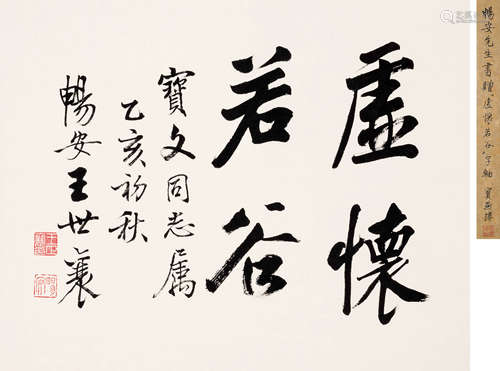 虛懷
若谷
寶文同志属
乙亥初秋
暢安王世襄
暢安先生書贈虛懷若谷字軸